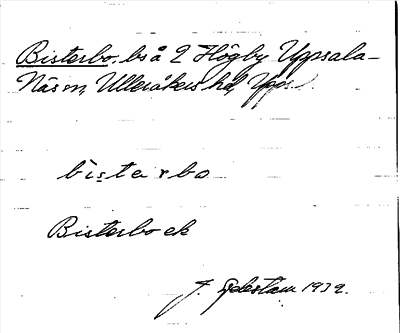 Bisterbo, bs å 2 Högby Uppsala-
Näs sn, Ulleråkers hd, Upps.
bistarbo
Bisterbo ek
J. Sjdestam 1939.